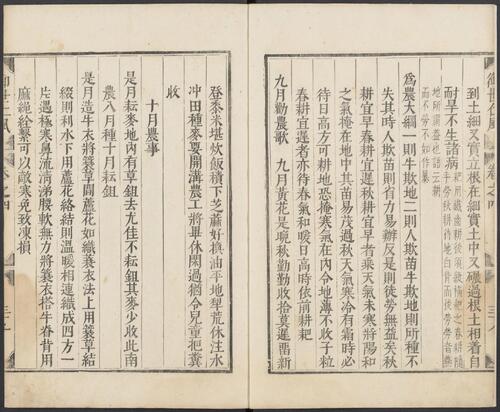 到土細又實立根在細實土中又碾過根土相着自
耐旱不生諸病
為農大綱一則牛欺地二則人欺苗牛欺地則所種不
失其時人欺苗則省力易辦反是則徒勞無益矣秋
耕宜早春耕宜遲秋耕宜早者乘天氣未寒將陽和
之氣掩在地中其苗易茂過秋天氣寒冷有霜時必
待日高方可耕地恐掩寒氣在內令地薄不收子粒
春耕宜遲者亦待春氣和暖日高時依前耕耙
九月勸農歌 九月黃花是晚秋勤勤收拾莫遲留新
登黍米堪炊飯積下芝蔴好換油手地犁荒休注水
冲田種麥要開溝農工將畢休閑過猶令兒童把糞
收
十月農事
是月耘麥地內有草鉏去尤佳不耘鉏其麥少收此南
農八月種十月耘鉏
是月造牛衣將簑草閒蘆花如織簑衣法上用簑草結
綴則利水下用蘆花絡結則温暖相連織成四方一
片遇極寒鼻流清涕腰軟無力將簑衣搭牛脊背用
麻繩拴繫可以敵寒免致凍損